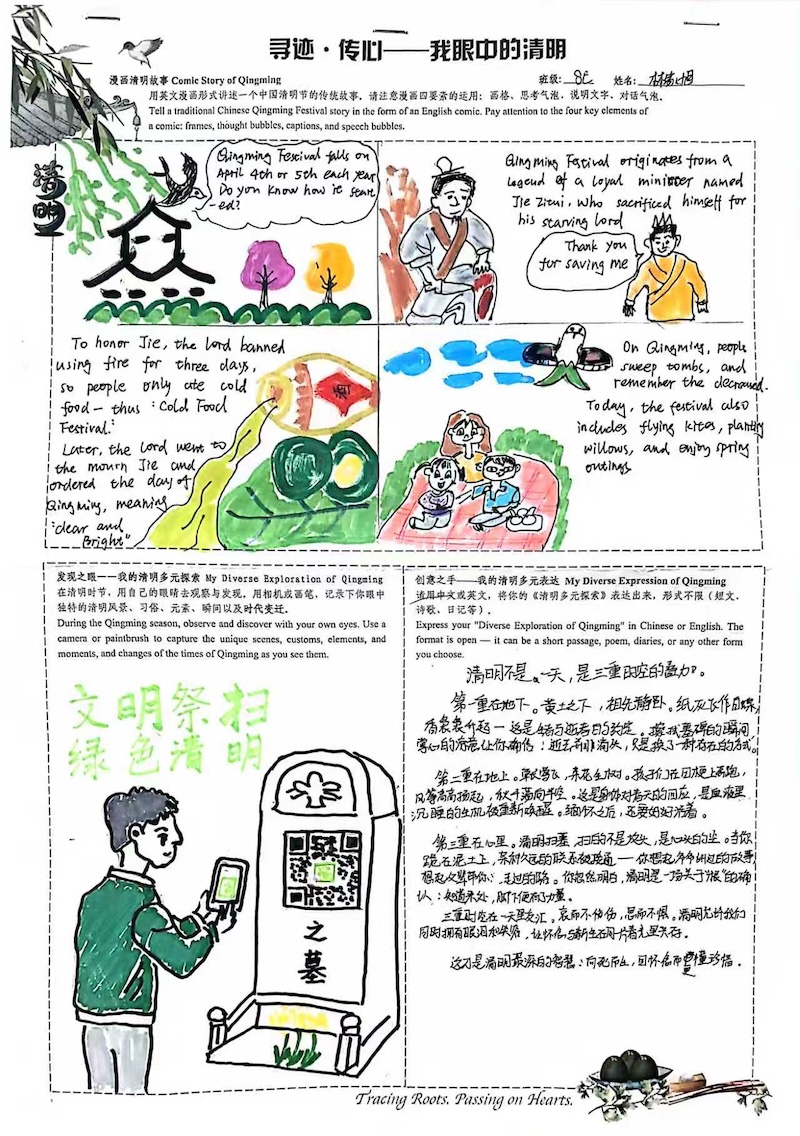 寻迹·传心——我眼中的清明
漫画清明故事 Comic Story of Qingming
班级: 8C 姓名:
用英文漫画形式讲述一个中国清明节的传统故事。请注意漫画四要素的运用：画格、思考气泡、说明文字、对话气泡。
Tell a traditional Chinese Qingming Festival story in the form of an English comic. Pay attention to the four key elements of
a comic: frames, thought bubbles, captions, and speech bubbles.
清明
Qingming Festival falls on
April 4th or 5th each year
Do you know how it start
-ed?
Qingming Festival originates from a
legend of a loyal minister named
Jie Zitui, who sacrificed himself for
his starving lord
Thank you
for saving me
To honor Jie, the lord banned
using fire for three days,
so people only ate cold
food — thus "Cold Food
Festival."
Later, the lord went to
the mourn Jie and
ordered the day of
Qingming, meaning
"clear and
Bright"
酒
On Qingming, people
sweep tombs, and
remember the deceased.
Today, the festival also
includes flying kites, planting
willows, and enjoy spring
outings
发现之眼——我的清明多元探索 My Diverse Exploration of Qingming
在清明时节，用自己的眼睛去观察与发现。用相机或画笔，记录下你眼中
独特的清明风景、习俗、元素、瞬间以及时代变迁。
During the Qingming season, observe and discover with your own eyes. Use a
camera or paintbrush to capture the unique scenes, customs, elements, and
moments, and changes of the times of Qingming as you see them.
文明祭扫
绿色清明
之墓
创意之手——我的清明多元表达 My Diverse Expression of Qingming
请用中文或英文，将你的《清明多元探索》表达出来，形式不限（短文、
诗歌、日记等）。
Express your "Diverse Exploration of Qingming" in Chinese or English. The
format is open — it can be a short passage, poem, diaries, or any other form
you choose.
清明不是一天，是三重时空的叠加。
第一重在地下。黄土之下，祖先静卧。纸灰飞作白蝶，
香袅袅升起——这是生者与逝者的约定。擦拭墓碑的瞬间
掌心的温度让你确信：逝去并非消失，只是换了一种存在的方式。
第二重在地上。草长莺飞，杂花生树。孩子们在田埂上奔跑，
风筝高高扬起，秋千荡向半空。这是身体对春天的回应，是血液里
沉睡的生机被重新唤醒。缅怀之后，还要好好活着。
第三重在心里。清明扫墓，扫的不是坟头，是心头的尘。当你
跪在泥土上，某种久远的联系被接通——你想起爷爷讲过的故事
想起父辈走过的路。你忽然明白，清明是一场关于"根"的确
认：知道来处，脚下便有了力量。
三重时空在一天里交汇。哀而不伤，思而不惧。清明允许我们
同时拥有眼泪和笑脸，让怀念与新生在同一片春光里共存。
这才是清明最深的智慧：向死而生，因怀念而更懂珍惜。
Tracing Roots. Passing on Hearts.